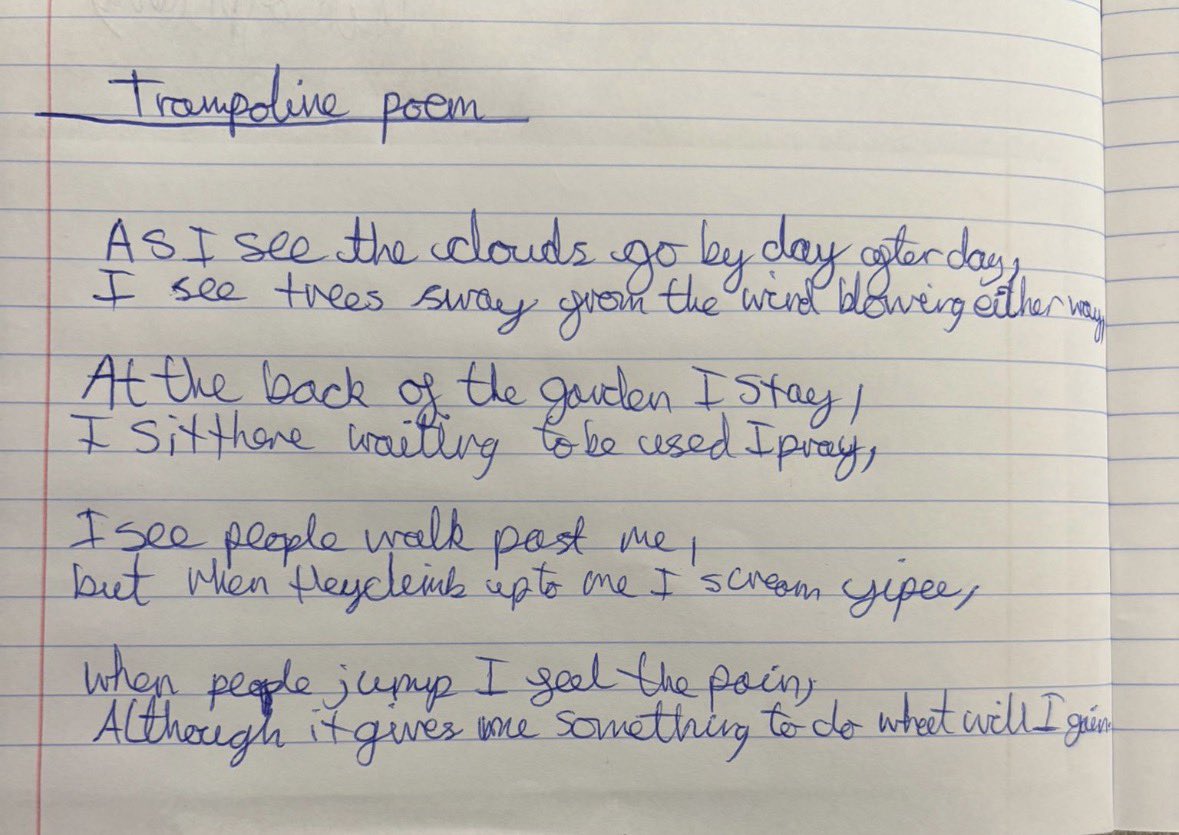 Trampoline poem
As I see the clouds go by day after day,
I see trees sway from the wind blowing either way,
At the back of the garden I stay,
I sit there waiting to be used I pray,
I see people walk past me,
but when they climb up to me I scream yipee,
when people jump I feel the pain,
Although it gives me something to do what will I gain